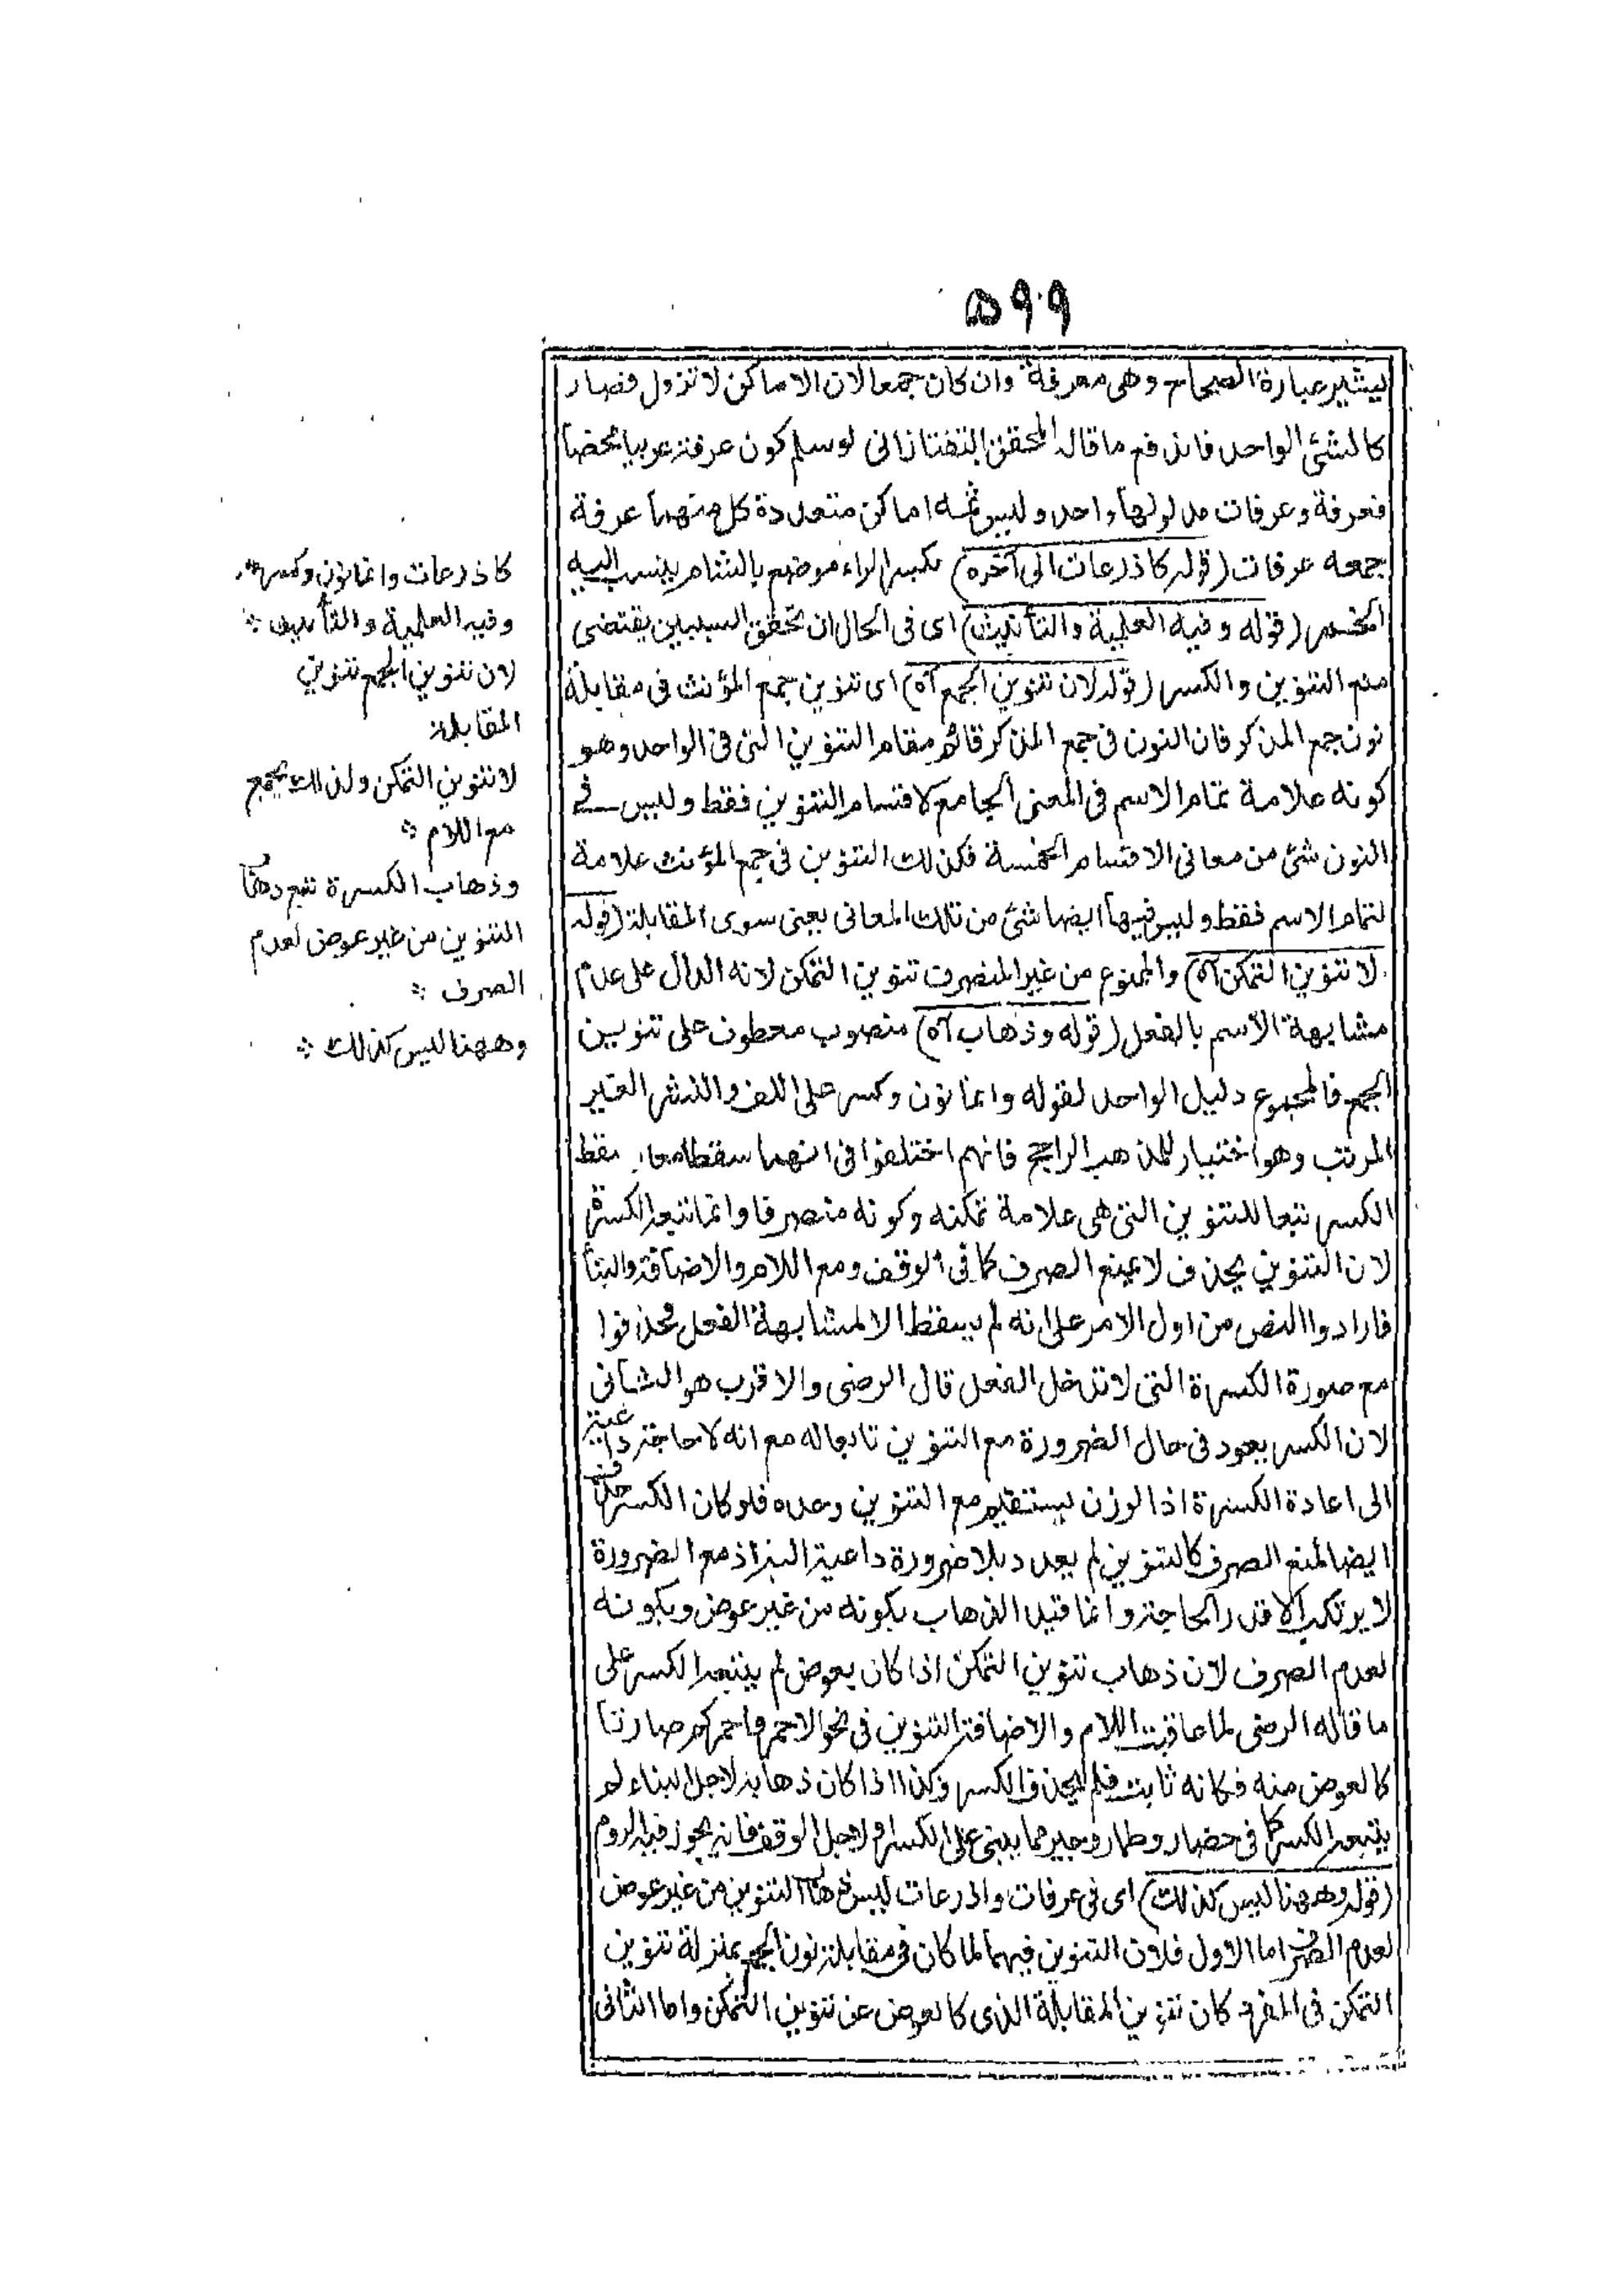 ۵۹۹
يشير عبارة الصحاح وهى معرفة وان كان جمعا لان الاماكن لا تزول فصار
كالشئ الواحد فاندفع ما قال المحقق التفتازانى لو سلم كون عرفة عربيا محضا
فعرفة وعرفات مدلولها واحد وليس ثمه اماكن متعددة كل منهما عرفة
جمعه عرفات (قوله كاذرعات الى آخره) بكسر الراء موضع بالشام ينسب اليه
الخمر (قوله وفيه العلمية والتأنيث) اى فى الحال ان تحقق السببين يقتضى
منع التنوين والكسر (قوله لان تنوين الجمع آه) اى تنوين جمع المؤنث فى مقابلة
نون جمع المذكر فان النون فى جمع المذكر قائم مقام التنوين التى فى الواحد وهو
كونه علامة تمام الاسم فى المعنى الجامع لاقسام التنوين فقط وليس فى
النون شئ من معانى الاقسام الخمسة فكذلك التنوين فى جمع المؤنث علامة
لتمام الاسم فقط وليس فيها ايضا شئ من تلك المعانى يعنى سوى المقابلة (قوله
لا تنوين التمكن آه) والممنوع من غير المنصرف تنوين التمكن لانه الدال على عدم
مشابهة الاسم بالفعل (قوله وذهاب آه) منصوب معطوف على تنوين
الجمع فالمجموع دليل الواحد لقوله وانما نون وكسر على اللف والنشر الغير
المرتب وهو اختيار للمذهب الراجح فانهم اختلفوا فى انهما سقطا معا سقط
الكسر تبعا للتنوين التى هى علامة تمكنه وكونه منصرفا وانما تتبعه الكسرة
لان التنوين بحذف لا يمنع الصرف كما فى الوقف ومع اللام والاضافة والبنأ
فارادوا النص من اول الامر على انه لم يسقط الا لمشابهة الفعل فحذفوا
مع صورة الكسرة التى لا تدخل الفعل قال الرضى والاقرب هو الثانى
لان الكسر يعود فى حال الضرورة مع التنوين تابعا له مع انه لا حاجة داعية
الى اعادة الكسرة اذ الوزن يستقيم مع التنوين وحده فلو كان الكسر حذف
ايضا لمنع الصرف كالتنوين لم يعد بلا ضرورة داعية اليه اذ مع الضرورة
لا يرتكب الا قدر الحاجة وانما قيد الذهاب بكونه من غير عوض وبكونه
لعدم الصرف لان ذهاب تنوين التمكن اذا كان بعوض لم يتبعه الكسر على
ما قاله الرضى لما عاقبت اللام والاضافة التنوين فى نحو الاحمر واحمركم صارتا
كالعوض منه فكانه ثابت فلم يحذف الكسر وكذا اذا كان ذهابه لاجل البناء لم
يتبعه الكسر كما فى حضار وطمار وجير مما يبنى على الكسر او لاجل الوقف فانه يجوز فيه الروم
(قوله وههنا ليس كذلك) اى فى عرفات واذرعات ليس ذهاب التنوين من غير عوض
لعدم الصرف اما الاول فلان التنوين فيهما لما كان فى مقابلة نون الجمع بمنزلة تنوين
التمكن فى المفرد كان تنوين المقابلة الذى كالعوض عن تنوين التمكن واما الثانى
كاذرعات وانما نون وكسر
وفيه العلمية والتأنيث
لان تنوين الجمع تنوين
المقابلة
لا تنوين التمكن ولذلك يجمع
مع اللام
وذهاب الكسرة تتبع ذهاب
التنوين من غير عوض لعدم
الصرف
وههنا ليس كذلك